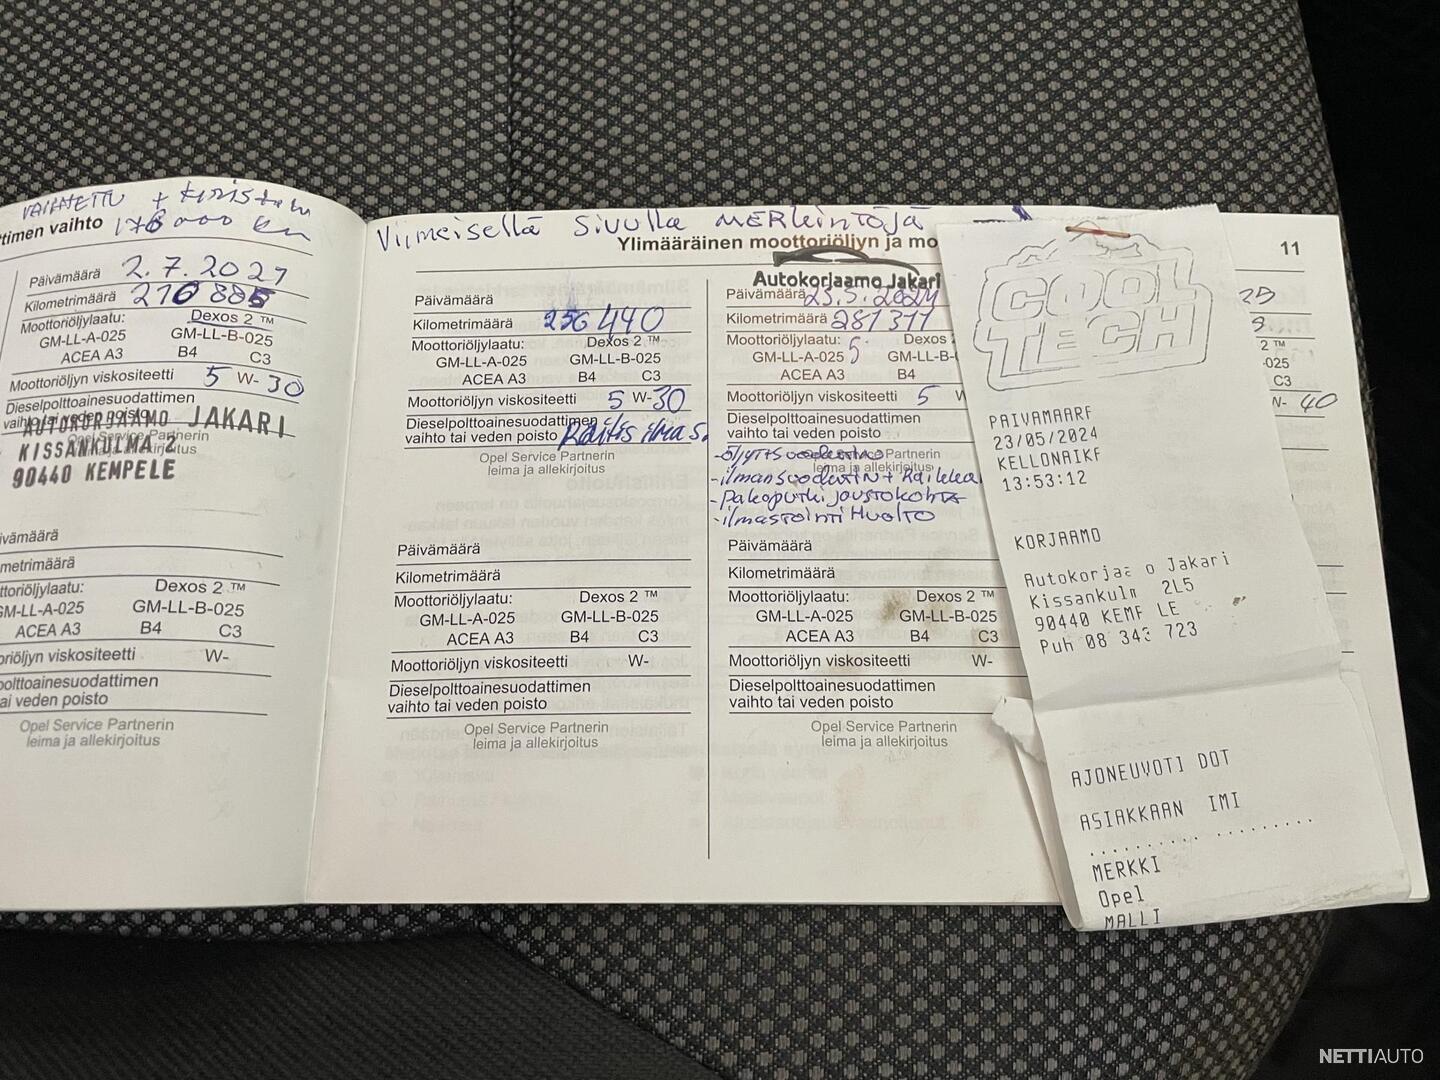 VAIHDETTU + kiristin
ttimen vaihto 176000 km
Päivämäärä 2.7.2021
Kilometrimäärä 210 885
Moottoriöljylaatu: Dexos 2 ™
GM-LL-A-025 GM-LL-B-025
ACEA A3 B4 C3
Moottoriöljyn viskositeetti 5 W- 30
Dieselpolttoainesuodattimen
vaihto tai veden poisto
AUTOKORJAAMO JAKARI
Opel Service Partnerin
leima ja allekirjoitus
KISSANKULMA 2
90440 KEMPELE
ivämäärä
metrimäärä
ttoriöljylaatu: Dexos 2 ™
GM-LL-A-025 GM-LL-B-025
ACEA A3 B4 C3
oriöljyn viskositeetti W-
polttoainesuodattimen
ai veden poisto
Opel Service Partnerin
leima ja allekirjoitus
Viimeisellä sivulla MERkintöjä
Ylimääräinen moottoriöljyn ja mo
11
Päivämäärä
Kilometrimäärä 256 440
Moottoriöljylaatu: Dexos 2 ™
GM-LL-A-025 GM-LL-B-025
ACEA A3 B4 C3
Moottoriöljyn viskositeetti 5 W- 30
Dieselpolttoainesuodattimen
vaihto tai veden poisto Raitis ilma s.
Opel Service Partnerin
leima ja allekirjoitus
Päivämäärä
Kilometrimäärä
Moottoriöljylaatu: Dexos 2 ™
GM-LL-A-025 GM-LL-B-025
ACEA A3 B4 C3
Moottoriöljyn viskositeetti W-
Dieselpolttoainesuodattimen
vaihto tai veden poisto
Opel Service Partnerin
leima ja allekirjoitus
Autokorjaamo Jakari
Päivämäärä 23.5.2024
Kilometrimäärä 281311
Moottoriöljylaatu: Dexos 2
GM-LL-A-025 GM-LL-B-
ACEA A3 B4
Moottoriöljyn viskositeetti 5 W
Dieselpolttoainesuodattimen
vaihto tai veden poisto
Opel Service Partnerin
leima ja allekirjoitus
-öljyt+suodatin
-ilmansuodatin + Raikkai
-pakoputki joustokohta
-ilmastointi Huolto
Päivämäärä
Kilometrimäärä
Moottoriöljylaatu: Dexos 2 ™
GM-LL-A-025 GM-LL-B-025
ACEA A3 B4 C3
Moottoriöljyn viskositeetti W-
Dieselpolttoainesuodattimen
vaihto tai veden poisto
Opel Service Partnerin
leima ja allekirjoitus
COOL
TECH
PAIVAMAARF
23/05/2024
KELLONAIKF
13:53:12
KORJAAMO
Autokorjaa o Jakari
Kissankulm 2L5
90440 KEMF LE
Puh 08 343 723
AJONEUVOTI DOT
ASIAKKAAN IMI
MERKKI
Opel
MALLI
2 ™
-025
C3
N- 40
NETTIAUTO